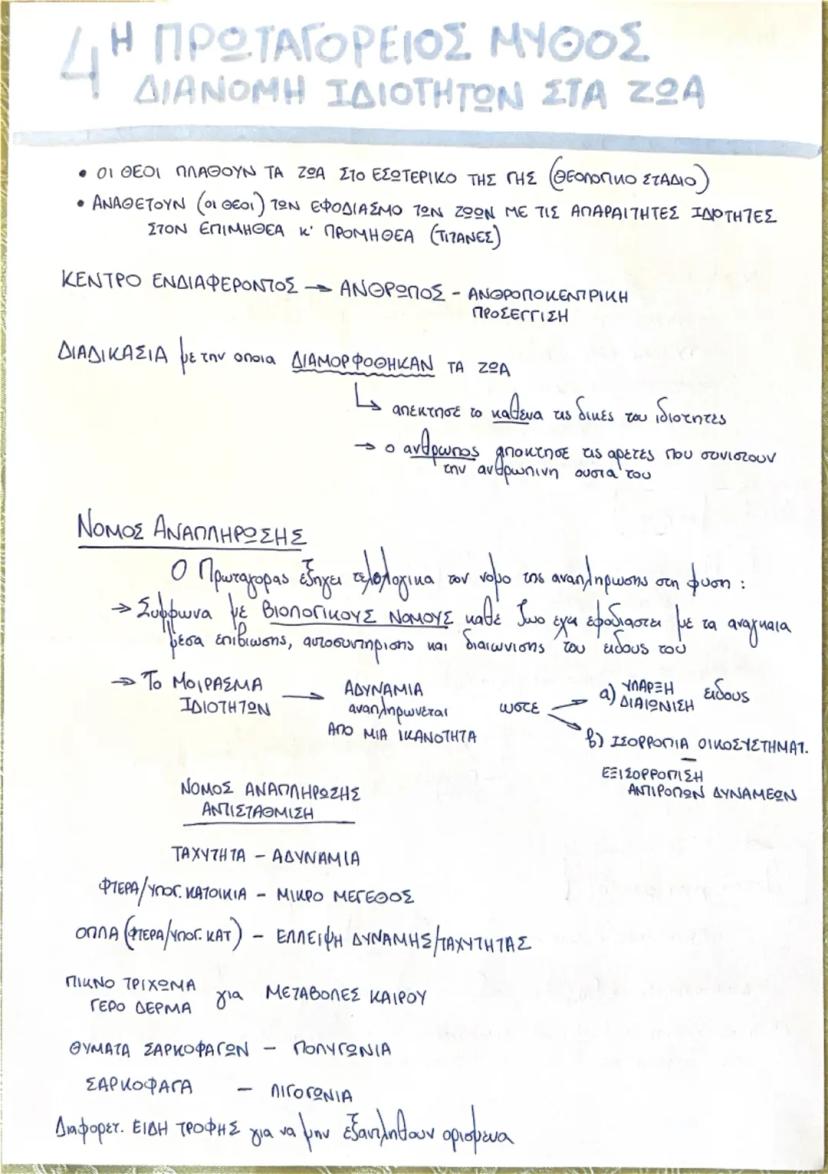 4 Η ΠΡΩΤΑΓΟΡΕΙΟΣ ΜΥΘΟΣ
ΔΙΑΝΟΜΗ ΙΔΙΟΤΗΤΩΝ ΣΤΑ ΖΩΑ
• ΟΙ ΘΕΟΙ ΠΛΑΘΟΥΝ ΤΑ ΖΩΑ ΣΤΟ ΕΣΩΤΕΡΙΚΟ ΤΗΣ ΓΗΣ (ΘΕΟΛΟΓΙΚΟ ΣΤΑΔΙΟ)
• ΑΝΑΘΕΤΟΥΝ (ΟΙ ΘΕΟΙ) ΤΩΝ ΕΦΟΔΙΑΣΜΟ ΤΩΝ ΖΩΩΝ ΜΕ ΤΙΣ ΑΠΑΡΑΙΤΗΤΕΣ ΙΔΙΟΤΗΤΕΣ
ΣΤΟΝ ΕΠΙΜΗΘΕΑ Κ' ΠΡΟΜΗΘΕΑ (ΤΙΤΑΝΕΣ)
ΚΕΝΤΡΟ ΕΝΔΙΑΦΕΡΟΝΤΟΣ → ΑΝΘΡΩΠΟΣ - ΑΝΘΡΟΠΟΚΕΝΤΡΙΚΗ
ΠΡΟΣΕΓΓΙΣΗ
ΔΙΑΔΙΚΑΣΙΑ με την οποια ΔΙΑΜΟΡΦΟΘΗΚΑΝ ΤΑ ΖΩΑ
↳ απεκτησε το καθενα τις δικες του ιδιοτητες
→ ο ανθρωπος αποκτησε τις αρετες που συνιστουν
την ανθρωπινη ουσια του
ΝΟΜΟΣ ΑΝΑΠΛΗΡΩΣΗΣ
Ο Πρωταγορας εξηγει τελολογικα τον νομο της αναπληρωσης στη φυση :
→ Συμφωνα με ΒΙΟΛΟΓΙΚΟΥΣ ΝΟΜΟΥΣ καθε ζωο εχει εφοδιαστει με τα αναγκαια
μεσα επιβιωσης, αυτοσυντηρισης και διαιωνισης του ειδους του
→ Το ΜΟΙΡΑΣΜΑ → ΑΔΥΝΑΜΙΑ ωστε α) ΥΠΑΡΞΗ ειδους
ΙΔΙΟΤΗΤΩΝ αναπληρωνεται ΔΙΑΙΩΝΙΣΗ
ΑΠΟ ΜΙΑ ΙΚΑΝΟΤΗΤΑ β) ΙΣΟΡΡΟΠΙΑ ΟΙΚΟΣΥΣΤΗΜΑΤ.
–
ΕΞΙΣΟΡΡΟΠΙΣΗ
ΑΝΤΙΡΟΠΩΝ ΔΥΝΑΜΕΩΝ
ΝΟΜΟΣ ΑΝΑΠΛΗΡΩΣΗΣ
ΑΝΤΙΣΤΑΘΜΙΣΗ
ΤΑΧΥΤΗΤΑ - ΑΔΥΝΑΜΙΑ
ΦΤΕΡΑ/ΥΠΟΓ. ΚΑΤΟΙΚΙΑ - ΜΙΚΡΟ ΜΕΓΕΘΟΣ
ΟΠΛΑ (ΦΤΕΡΑ/ΥΠΟΓ. ΚΑΤ) - ΕΛΛΕΙΨΗ ΔΥΝΑΜΗΣ/ΤΑΧΥΤΗΤΑΣ
ΠΙΚΝΟ ΤΡΙΧΩΜΑ για ΜΕΤΑΒΟΛΕΣ ΚΑΙΡΟΥ
ΓΕΡΟ ΔΕΡΜΑ
ΘΥΜΑΤΑ ΣΑΡΚΟΦΑΓΩΝ - ΠΟΛΥΓΩΝΙΑ
ΣΑΡΚΟΦΑΓΑ - ΛΙΓΟΓΩΝΙΑ
Διαφορετ. ΕΙΔΗ ΤΡΟΦΗΣ για να μην εξαντληθουν ορισμενα